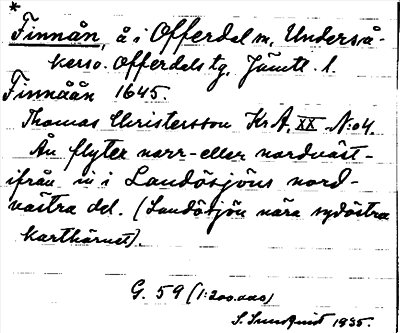 *
Finnån, å i Offerdal m. Underså-
kerso. Offerdals tg, Jämtl. l.
Finnåån 1645
Thomas Christersson Kr A, XX N:o 4.
Ån flyter norr- eller nordväst-
ifrån in i Landösjöns nord-
västra del. (Landösjön nära sydöstra
karthörnet).
G. 59 (1:200.000)
S. Sundquist 1935.